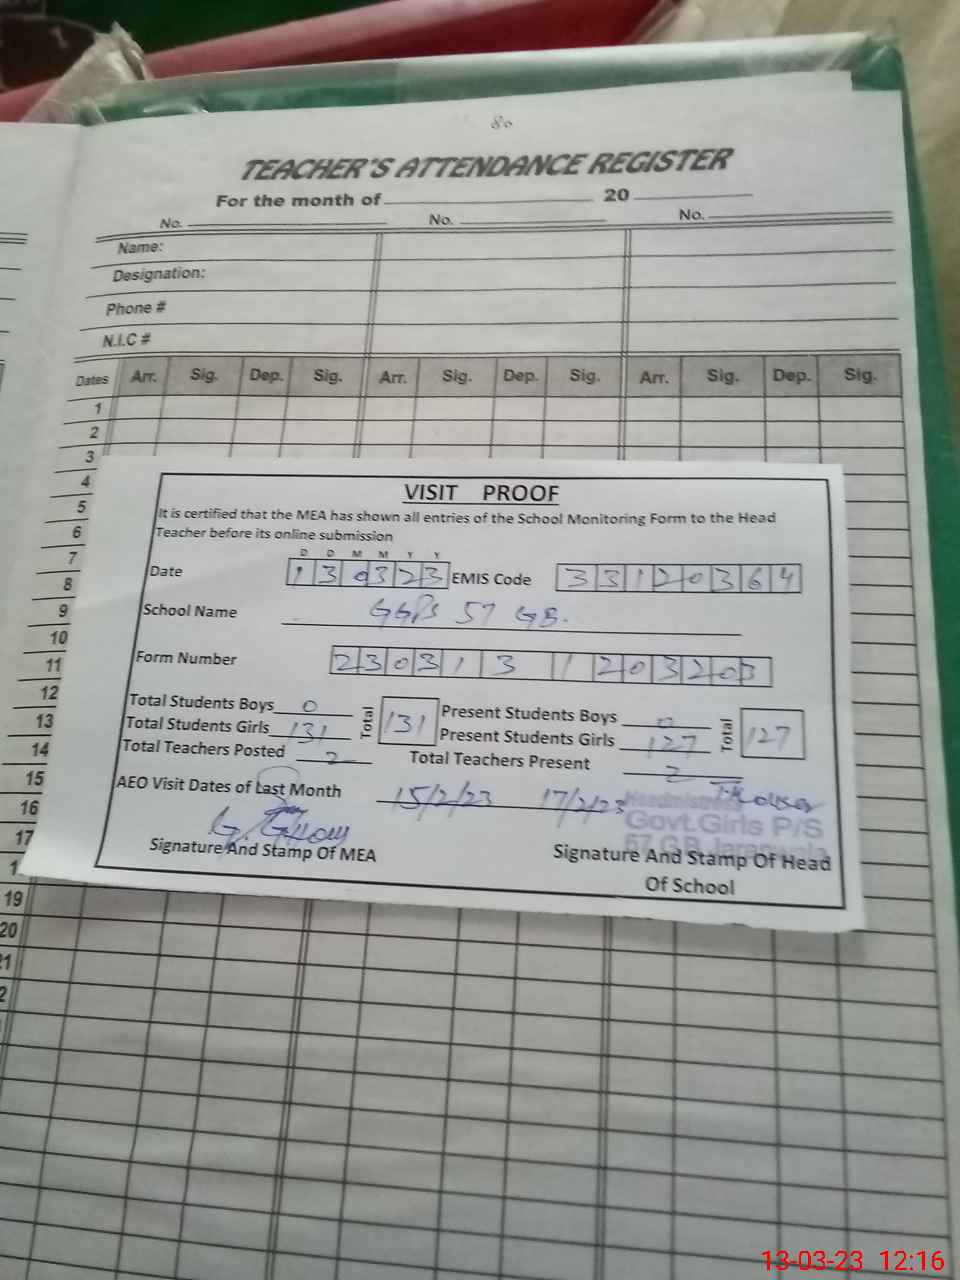 80
TEACHER'S ATTENDANCE REGISTER
For the month of 20
No. No. No.
Name:
Designation:
Phone #
N.I.C #
Dates Arr. Sig. Dep. Sig. Arr. Sig. Dep. Sig. Arr. Sig. Dep. Sig.
1
2
3
4
5
6
7
8
9
10
11
12
13
14
15
16
17
VISIT PROOF
It is certified that the MEA has shown all entries of the School Monitoring Form to the Head
Teacher before its online submission
D D M M Y Y
Date 130323 EMIS Code 33120364
School Name GGPS 57 GB.
Form Number 230313 1203203
Total Students Boys 0 Total 131 Present Students Boys 0 Total 127
Total Students Girls 131 Present Students Girls 127
Total Teachers Posted 2 Total Teachers Present 2
AEO Visit Dates of Last Month 15/2/23 17/2/23
Headmistress
Govt.Girls P/S
57 G.B Jaranwala
Signature And Stamp Of MEA Signature And Stamp Of Head
Of School
19
20
13-03-23 12:16